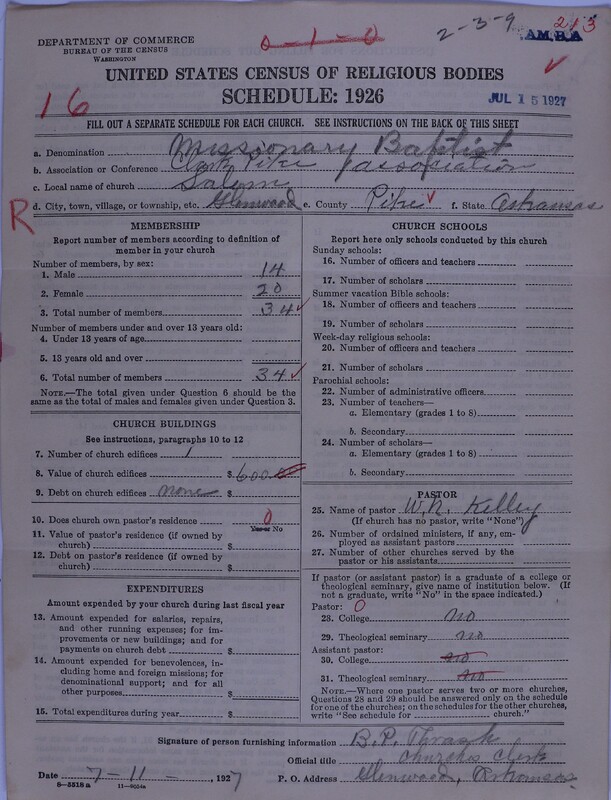 2-3-9
213
0-1-0
A.M.B.A
DEPARTMENT OF COMMERCE
BUREAU OF THE CENSUS
WASHINGTON
UNITED STATES CENSUS OF RELIGIOUS BODIES
SCHEDULE: 1926
16
JUL 15 1927
FILL OUT A SEPARATE SCHEDULE FOR EACH CHURCH. SEE INSTRUCTIONS ON THE BACK OF THIS SHEET
a. Denomination Missionary Baptist
b. Association or Conference Clark Pike association
c. Local name of church Salem
d. City, town, village, or township, etc. Glenwood e. County Pike f. State Arkansas
R
MEMBERSHIP
Report number of members according to definition of
member in your church
Number of members, by sex:
1. Male 14
2. Female 20
3. Total number of members 34
Number of members under and over 13 years old:
4. Under 13 years of age
5. 13 years old and over
6. Total number of members 34
NOTE.—The total given under Question 6 should be
same as the total of males and females given under Question 3.
CHURCH BUILDINGS
See instructions, paragraphs 10 to 12
7. Number of church edifices 1
8. Value of church edifices $ 600
9. Debt on church edifices none $
10. Does church own pastor's residence 0
Yes or No
11. Value of pastor's residence (if owned by
church) $
12. Debt on pastor's residence (if owned by
church) $
EXPENDITURES
Amount expended by your church during last fiscal year
13. Amount expended for salaries, repairs,
and other running expenses; for im-
provements or new buildings; and for
payments on church debt $
14. Amount expended for benevolences, in-
cluding home and foreign missions; for
denominational support; and for all
other purposes $
15. Total expenditures during year $
CHURCH SCHOOLS
Report here only schools conducted by this church
Sunday schools:
16. Number of officers and teachers
17. Number of scholars
Summer vacation Bible schools:
18. Number of officers and teachers
19. Number of scholars
Week-day religious schools:
20. Number of officers and teachers
21. Number of scholars
Parochial schools:
22. Number of administrative officers
23. Number of teachers—
a. Elementary (grades 1 to 8)
b. Secondary
24. Number of scholars—
a. Elementary (grades 1 to 8)
b. Secondary
PASTOR
25. Name of pastor W.R. Kelley
(If church has no pastor, write "None")
26. Number of ordained ministers, if any, em-
ployed as assistant pastors
27. Number of other churches served by the
pastor or his assistants
If pastor (or assistant pastor) is a graduate of a college or
theological seminary, give name of institution below. (If
not a graduate, write "No" in the space indicated.)
Pastor: 0
28. College no
29. Theological seminary no
Assistant pastor:
30. College no
31. Theological seminary no
NOTE.—Where one pastor serves two or more churches,
Questions 28 and 29 should be answered only on the schedule
for one of the churches; on the schedules for the other churches,
write "See schedule for church."
Signature of person furnishing information B.P. Thrash
Official title Church Clerk
Date 7-11-, 1927 P. O. Address Glenwood, Arkansas.
8-5318 a